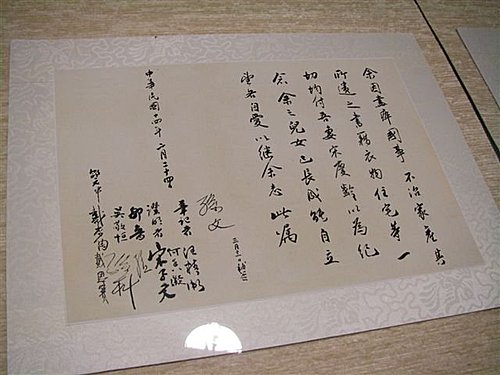 余因盡瘁國事 不治家產其
所遺之書籍衣物住宅等一
切均付吾妻宋慶齡以為紀
念余之兒女已長成能自立
望各自愛以继余志此属
孫文 三月十一日補簽
中華民國十四年 二月二十四日
筆記者 汪精衛
何香凝
證明者 宋子文
鄒魯
吳敬恒 孫科
戴恩賽